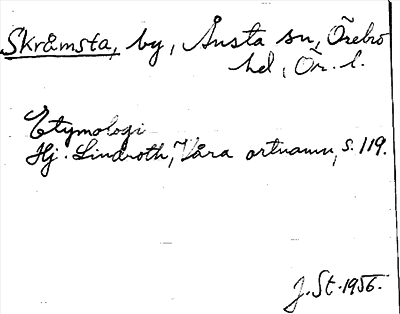 Skråmsta, by, Ånsta sn, Örebro
hd, Ör. l.
Etymologi
Hj. Lindroth, Våra ortnamn, s. 119.
J. St. 1956.